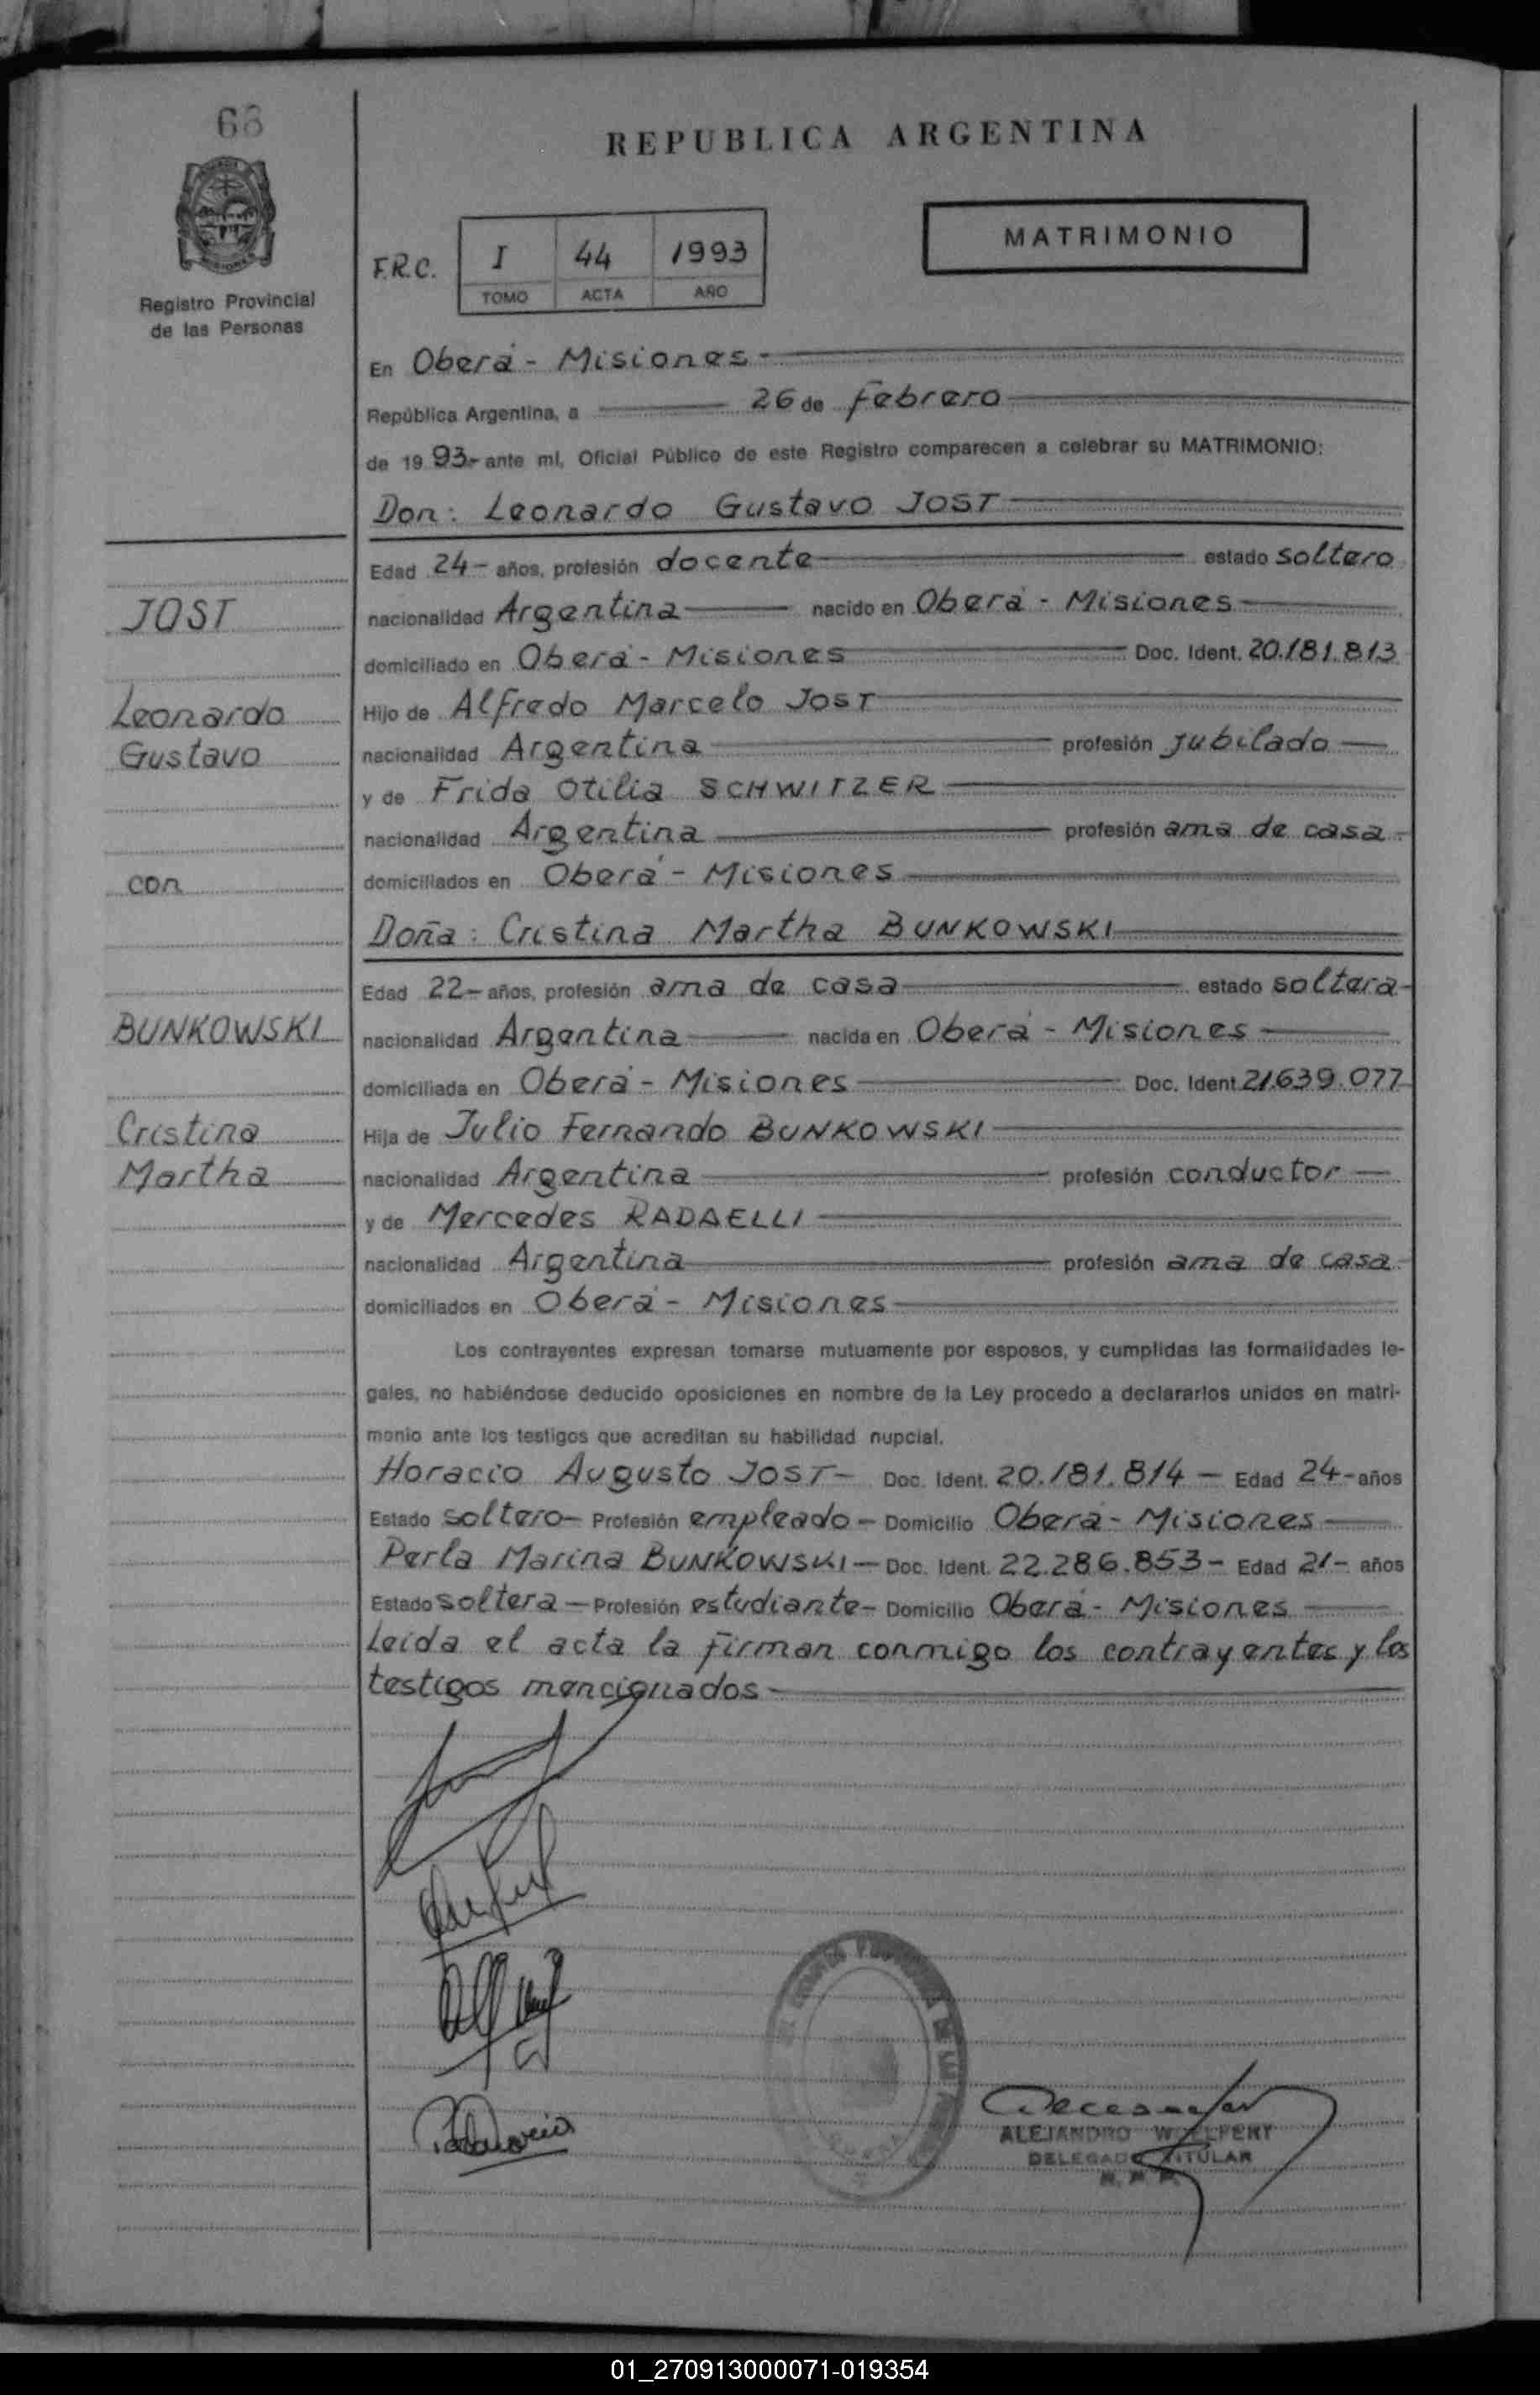 REPUBLICA ARGENTINA
MATRIMONIO
F.R.C.
I 44 1993
TOMO ACTA AÑO
Registro Provincial
de las Personas
En Oberá - Misiones -
República Argentina, a 26 de Febrero
de 19 93.- ante mí, Oficial Público de este Registro comparecen a celebrar su MATRIMONIO:
Don: Leonardo Gustavo JOST
Edad 24- años, profesión docente estado soltero
JOST
nacionalidad Argentina nacido en Oberá - Misiones
domiciliado en Oberá - Misiones Doc. Ident. 20.181.813
Leonardo
Hijo de Alfredo Marcelo JOST
Gustavo
nacionalidad Argentina profesión jubilado
y de Frida Otilia SCHWITZER
nacionalidad Argentina profesión ama de casa.
con
domiciliados en Oberá - Misiones
Doña: Cristina Martha BUNKOWSKI
Edad 22- años, profesión ama de casa estado soltera-
BUNKOWSKI
nacionalidad Argentina nacida en Oberá - Misiones
domiciliada en Oberá - Misiones Doc. Ident. 21.639.077
Cristina
Hija de Julio Fernando BUNKOWSKI
Martha
nacionalidad Argentina profesión conductor
y de Mercedes RADAELLI
nacionalidad Argentina profesión ama de casa.
domiciliados en Oberá - Misiones
Los contrayentes expresan tomarse mutuamente por esposos, y cumplidas las formalidades le-
gales, no habiéndose deducido oposiciones en nombre de la Ley procedo a declararlos unidos en matri-
monio ante los testigos que acreditan su habilidad nupcial.
Horacio Augusto JOST- Doc. Ident. 20.181.814 - Edad 24- años
Estado soltero- Profesión empleado - Domicilio Oberá - Misiones
Perla Marina BUNKOWSKI - Doc. Ident. 22.286.853 - Edad 21- años
Estado soltera - Profesión estudiante- Domicilio Oberá - Misiones
Leída el acta la firman conmigo los contrayentes y los
testigos mencionados -
ALEJANDRO WOLFERT
DELEGADO TITULAR
01_270913000071-019354